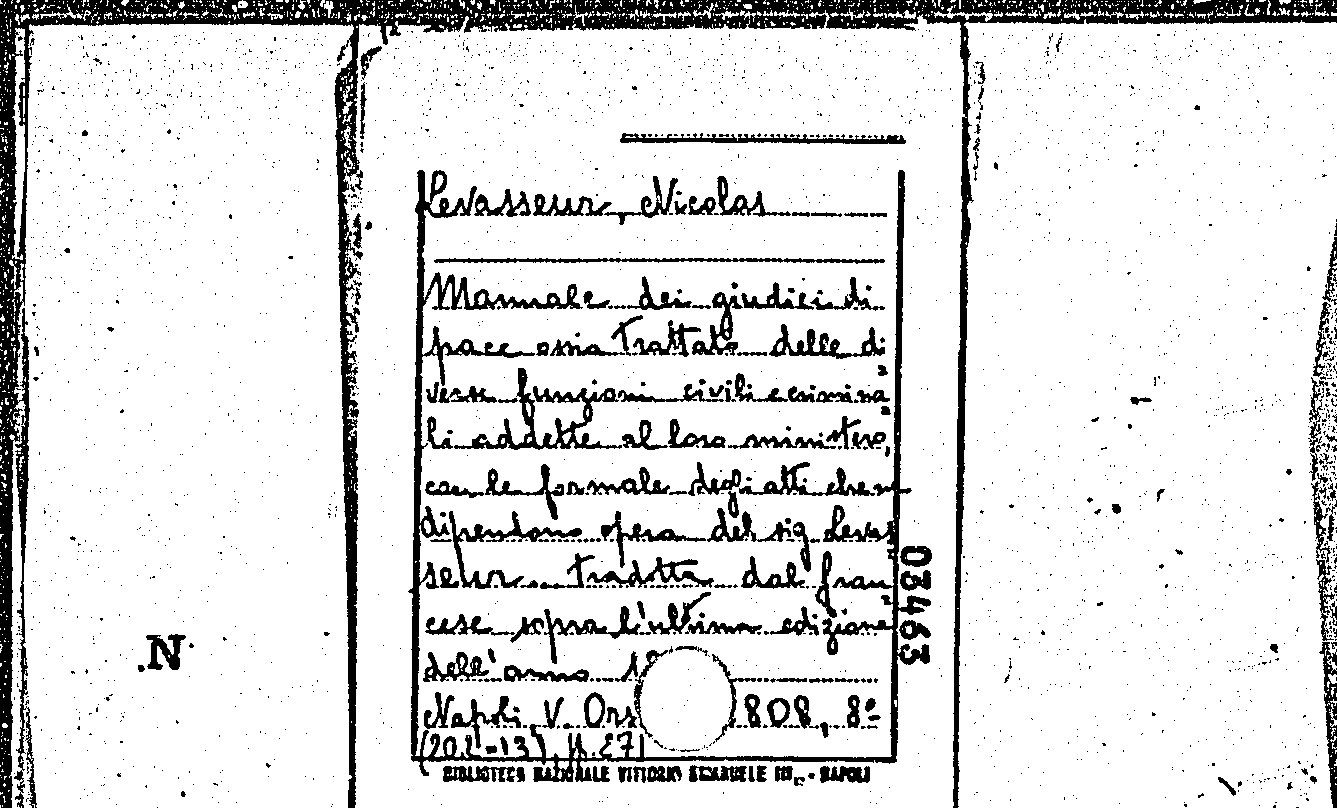 Levasseur, Nicolas
Manuale dei giudici di
pace ossia Trattato delle di
verse funzioni civili e crimina
li addette al loro ministero,
con le formale degli atti che n
dipendono opera del sig Levas
seur... tradotta dal fran
cese sopra l'ultima edizione
dell'anno 18
Napoli, V. Ors 808, 8º
BIBLIOTECA NAZIONALE VITTORIO EMANUELE III - NAPOLI
03463
.N.